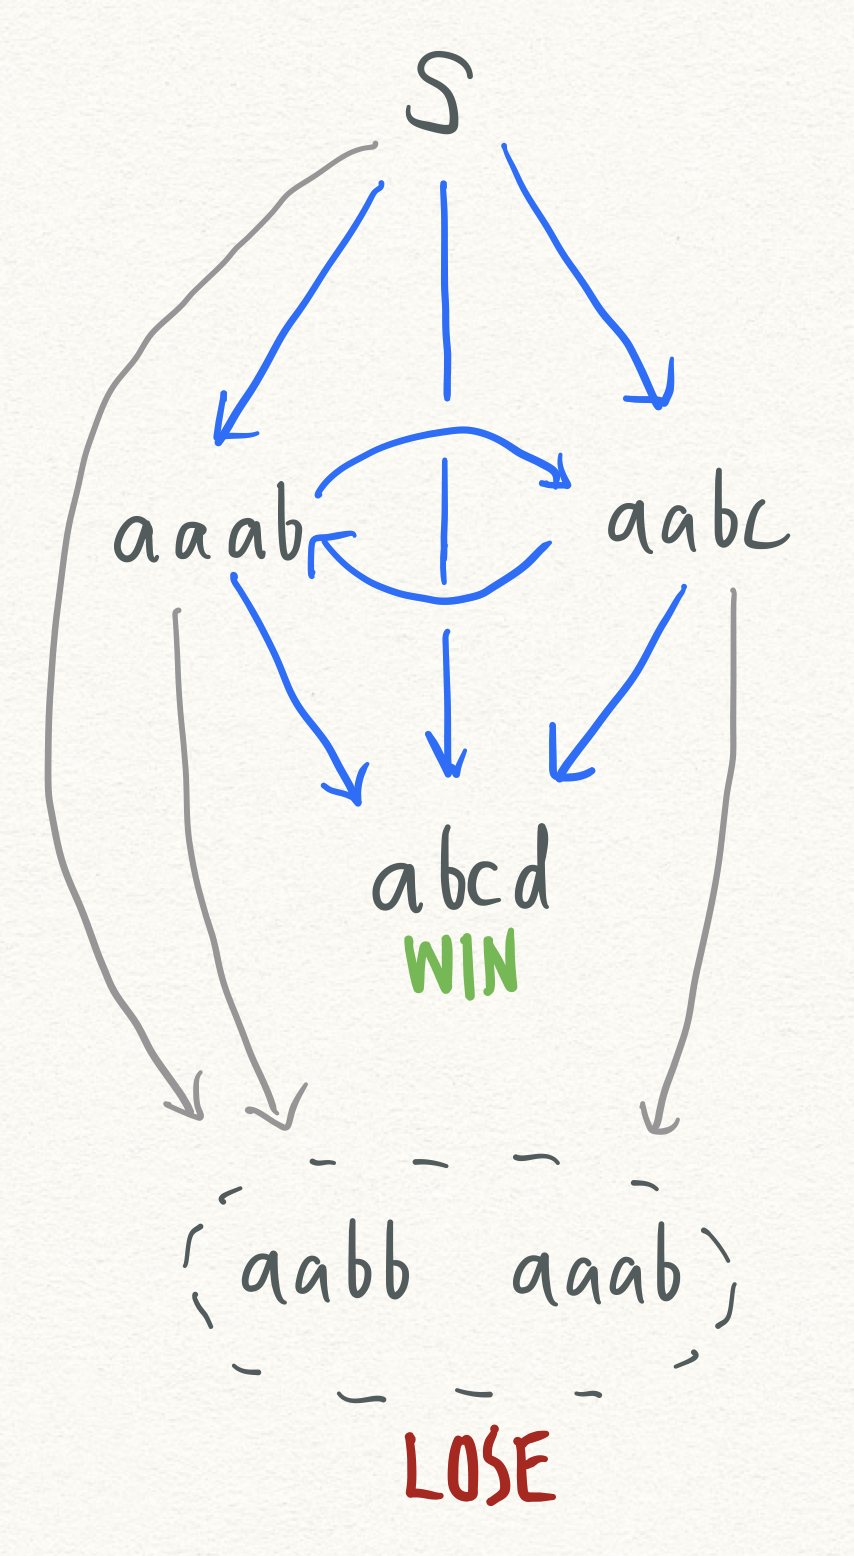 S
aaab aabc
abcd
WIN
aabb aaab
LOSE